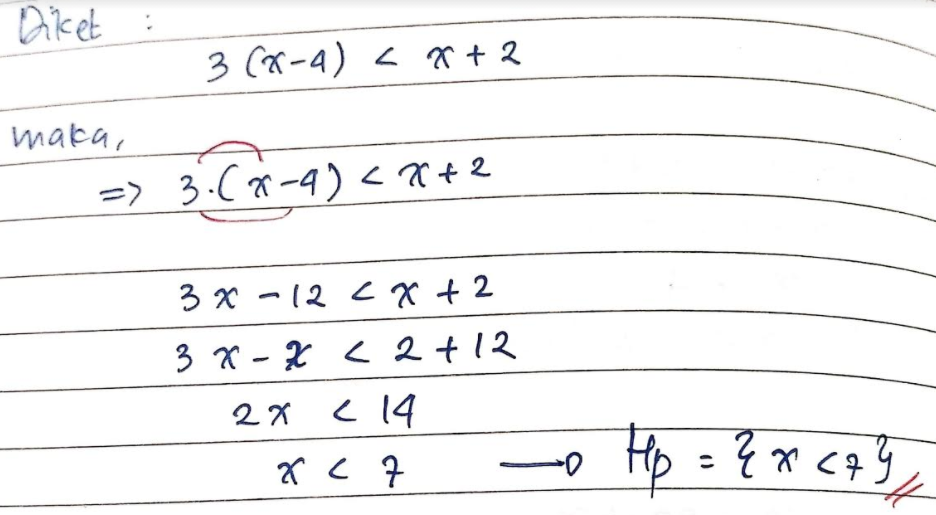 Diket :
3 (x-4) < x + 2
maka,
=> 3.(x-4) < x + 2
3x - 12 < x + 2
3x - x < 2 + 12
2x < 14
x < 7 → Hp = {x < 7}